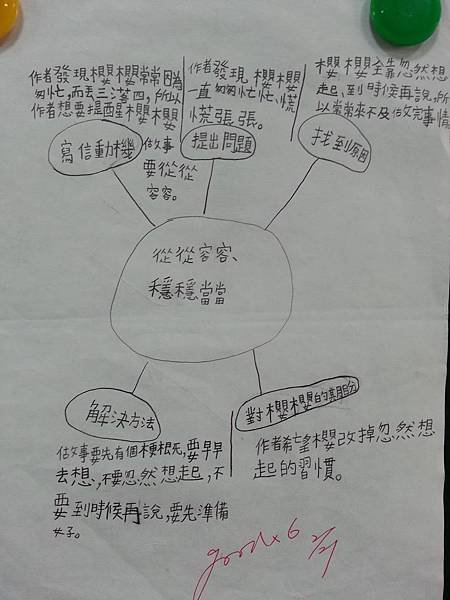 作者發現櫻櫻常常因為
匆忙,而丟三漏四,所以
作者想要提醒櫻櫻
做事
要從從
容容。
寫信動機
作者發現櫻櫻
一直匆匆忙忙、慌
慌張張。
提出問題
櫻櫻全靠忽然想
起、到時侯再說,所
以常常來不及做完事情
找到原因
從從容容、
穩穩當當
解決方法
做事要先有個梗概,要早早
去想,不要忽然想起,不
要到時候再說,要先準備
好。
對櫻櫻的期盼
作者希望櫻改掉忽然想
起的習慣。
good×6